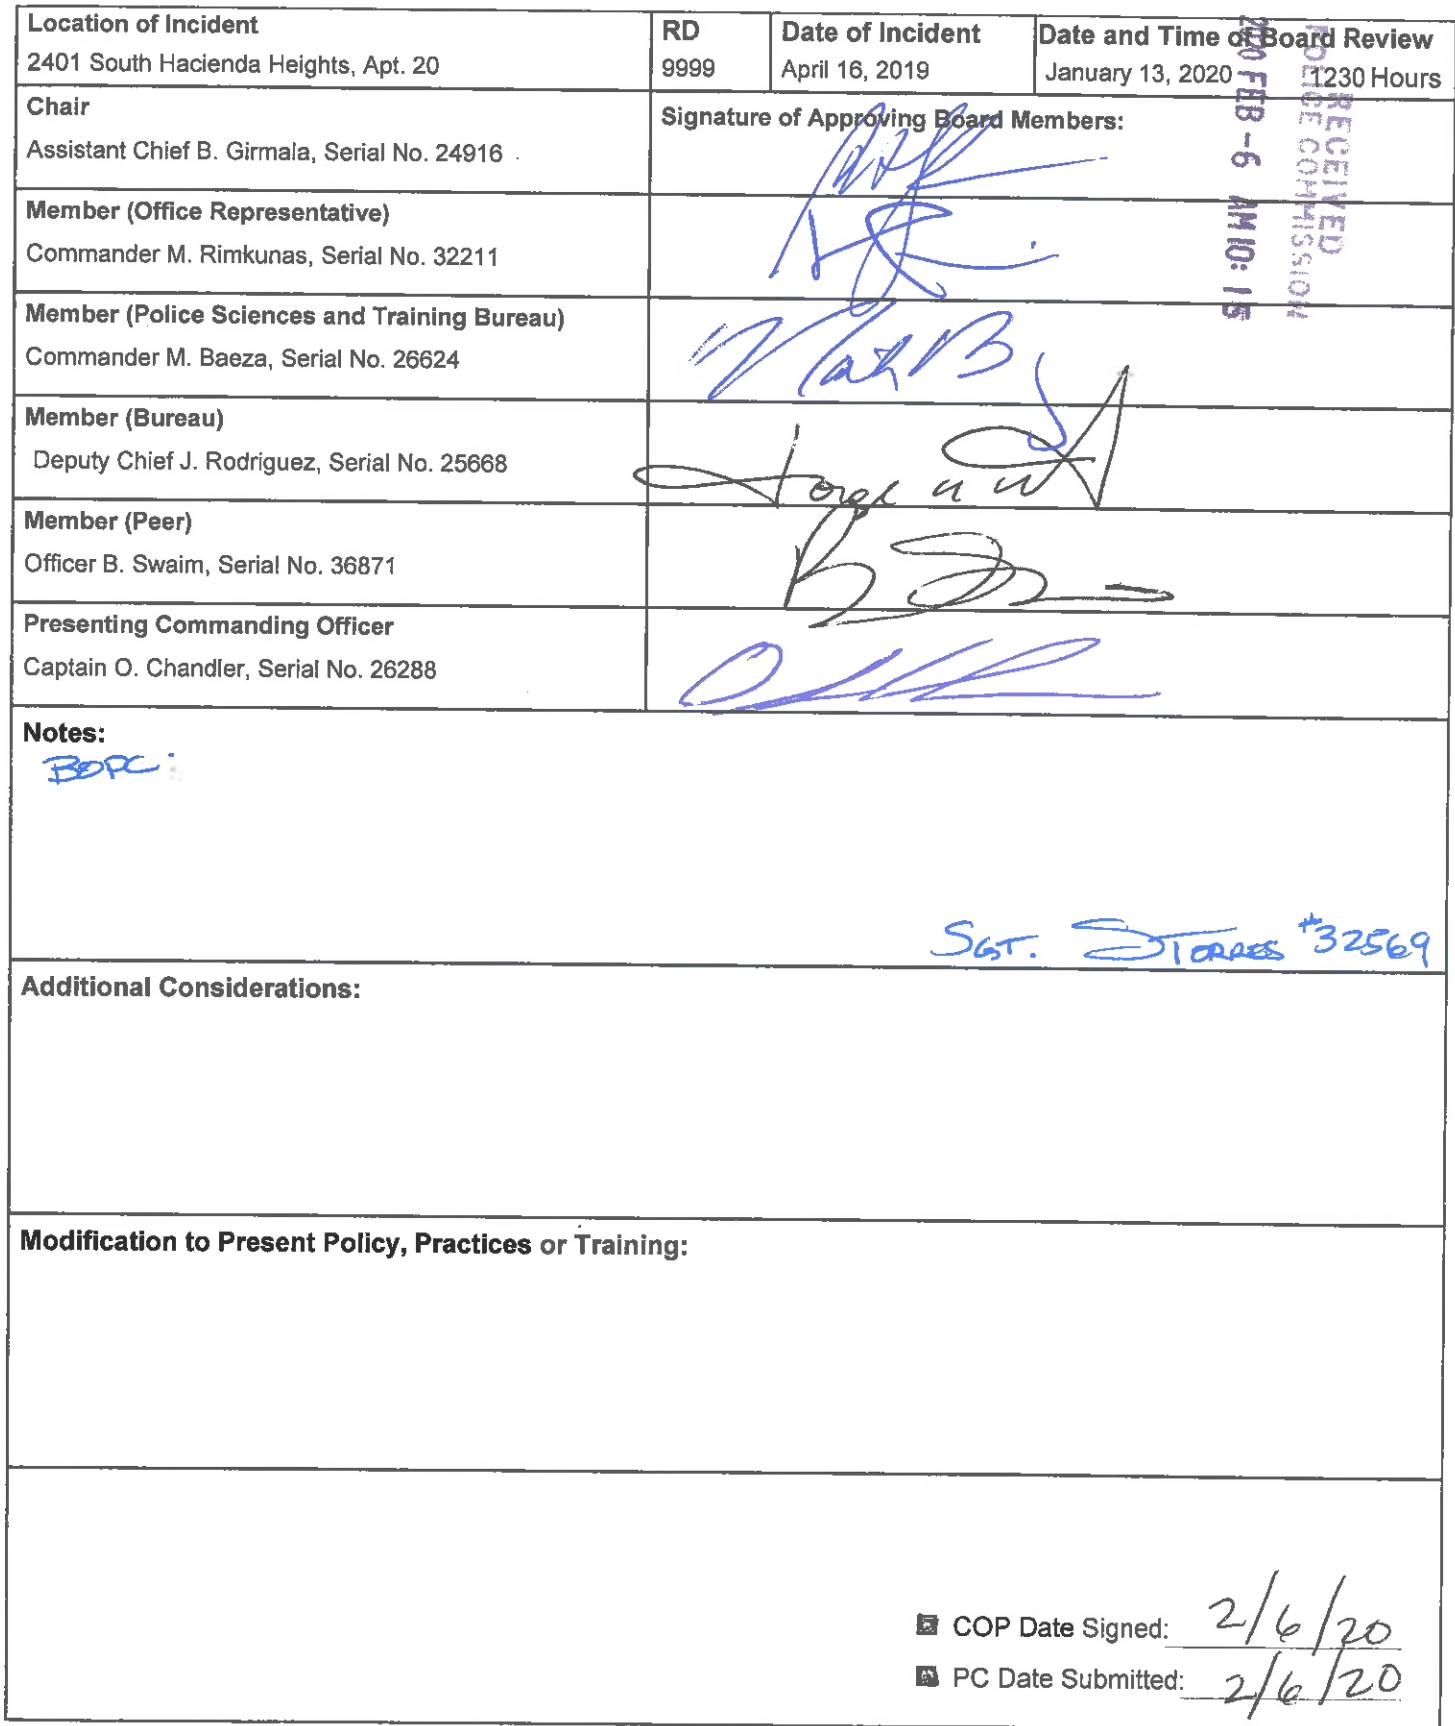 Location of Incident
2401 South Hacienda Heights, Apt. 20
RD
9999
Date of Incident
April 16, 2019
Date and Time of Board Review
January 13, 2020 1230 Hours
RECEIVED
POLICE COMMISSION
2020 FEB -6 AM 10: 15
Chair
Assistant Chief B. Girmala, Serial No. 24916
Signature of Approving Board Members:
Member (Office Representative)
Commander M. Rimkunas, Serial No. 32211
Member (Police Sciences and Training Bureau)
Commander M. Baeza, Serial No. 26624
Member (Bureau)
Deputy Chief J. Rodriguez, Serial No. 25668
Member (Peer)
Officer B. Swaim, Serial No. 36871
Presenting Commanding Officer
Captain O. Chandler, Serial No. 26288
Notes:
BOPC:
SGT. S TORRES #32569
Additional Considerations:
Modification to Present Policy, Practices or Training:
COP Date Signed: 2/6/20
PC Date Submitted: 2/6/20